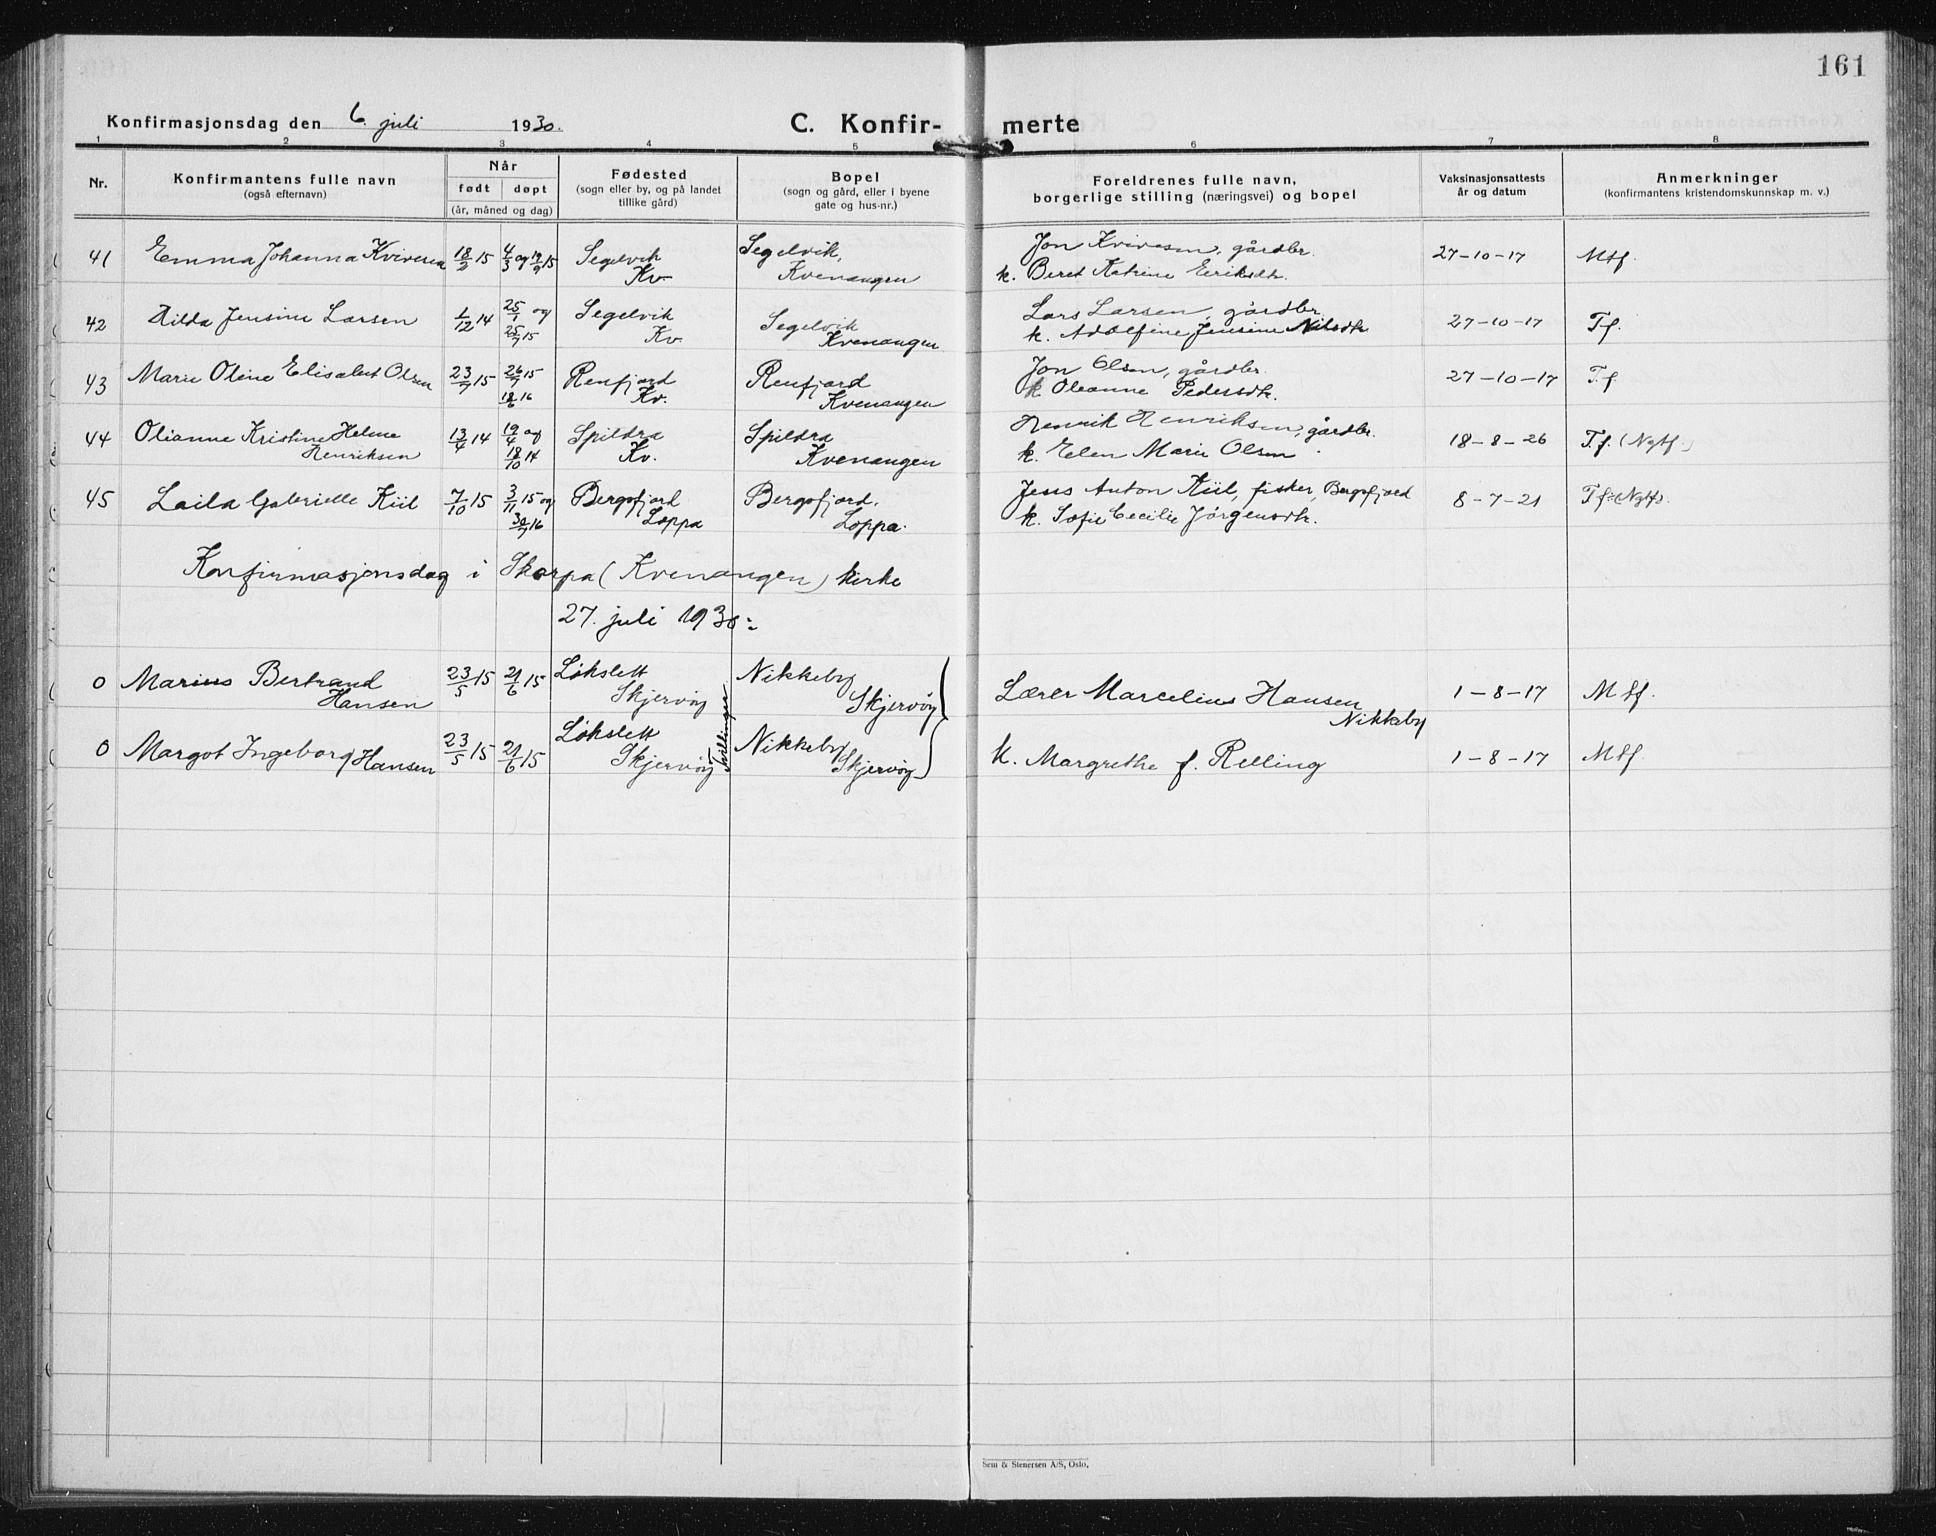 161
Konfirmasjonsdag den 6. juli 1930.
C. Konfir- merte
1 2 3 4 5 6 7 8
Nr.
Konfirmantens fulle navn
(også efternavn)
Når
født døpt
(år, måned og dag)
Fødested
(sogn eller by, og på landet
tillike gård)
Bopel
(sogn og gård, eller i byene
gate og hus-nr.)
Foreldrenes fulle navn,
borgerlige stilling (næringsvei) og bopel
Vaksinasjonsattests
år og datum
Anmerkninger
(konfirmantens kristendomskunnskap m. v.)
41 Emma Johanna Kvivesen 18/2 15 4/3 og 19/9 15 Segelvik Kv. Segelvik, Kvenangen
Jon Kvivesen, gårdbr.
k. Beret Katrine Eeriksdtr.
27-10-17 Mtf.
42 Hilda Jensine Larsen 1/12 14 25/1 og 25/7 15 Segelvik Kv. Segelvik Kvenangen
Lars Larsen, gårdbr.
k. Adolfine Jensine Nilsdtr
27-10-17 Tf.
43 Marie Oline Elisabet Olsen 23/7 15 26/7 15 18/6 16 Renfjord Kv. Renfjord Kvenangen
Jon Olsen, gårdbr.
k Oleanne Pedersdtr.
27-10-17 T.f
44 Olianne Kristine Helene Henriksen 13/4 14 19/4 og 18/10 14 Spildra Kv. Spildra Kvenangen
Henrik Henriksen, gårdbr.
k. Elen Marie Olsen
18-8-26 T.f. (Ngtf.)
45 Laila Gabrielle Kiil 7/10 15 3/11 15 og 30/7 16 Bergsfjord Loppa Bergsfjord, Loppa.
Jens Anton Kiil, fisker, Bergsfjord
k. Sofie Cecilie Jörgensdtr.
8-7-21 Tf. (Ngtf).
Konfirmasjonsdag i Skorpa (Kvenangen) kirke
27. juli 1930:
0 Marius Bertrand Hansen 23/5 15 21/6 15 Løkslett Skjervöy Nikkeby Skjervöy
Lærer Marcelius Hansen
Nikkeby
1-8-17 Mtf.
Tvillinger
0 Margot Ingeborg Hansen 23/5 15 21/6 15 Løkslett Skjervöy Nikkeby Skjervöy
k. Margrethe f. Relling
1-8-17 Mtf.
Sem & Stenersen A/S, Oslo.